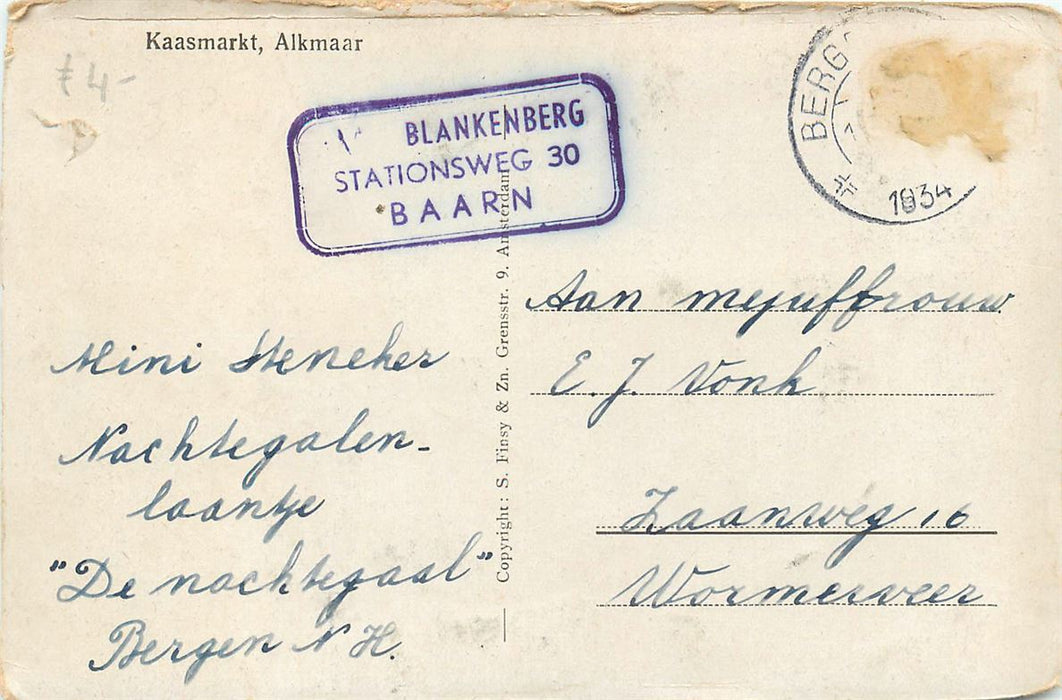 Kaasmarkt, Alkmaar
BLANKENBERG
STATIONSWEG 30
BAARN
BERG
1934
Mini
Nachtegalen-
laantje
"De nachtegaal"
Bergen N H.
Copyright: S. Finsy & Zn. Grensstr. 9. Amsterdam
Aan mejuffrouw
E. J. Vonk
Zaanweg 16
Wormerveer